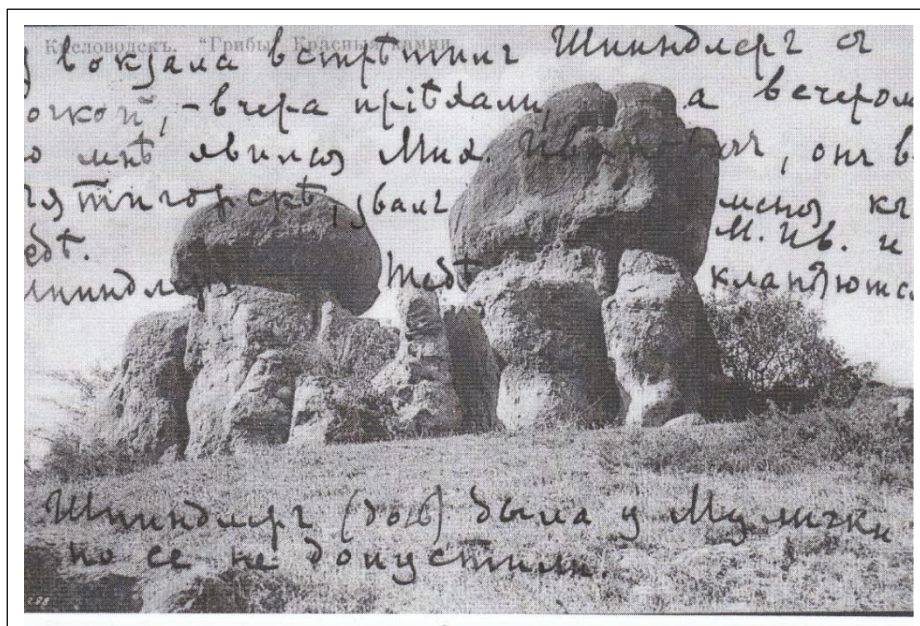 Кисловодскъ. "Грибы" Красныя камни
у вокзала встрѣтилъ Шпиндлеръ съ
очкой, - вчера пріѣхали, а вечеромъ
о мнѣ явился Мих. Ивановичъ, онъ в
ятигорскѣ, звалъ меня къ
ебѣ. М. Ив. и
пиндлеръ тебѣ кланяютс
Шпиндлеръ (дочь) была у Мулички
но ее не допустили.
288